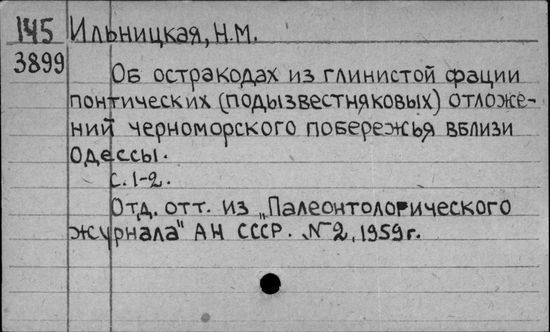 145 Ильницкая, Н.М.
3899
Об остракодах из глинистой фации
понтических (подызвестняковых) отложе-
ний черноморского побережья вблизи
Одессы.
С. 1-2.
Отд. отт. из „Палеонтологического
журнала" АН СССР. №2, 1959г.